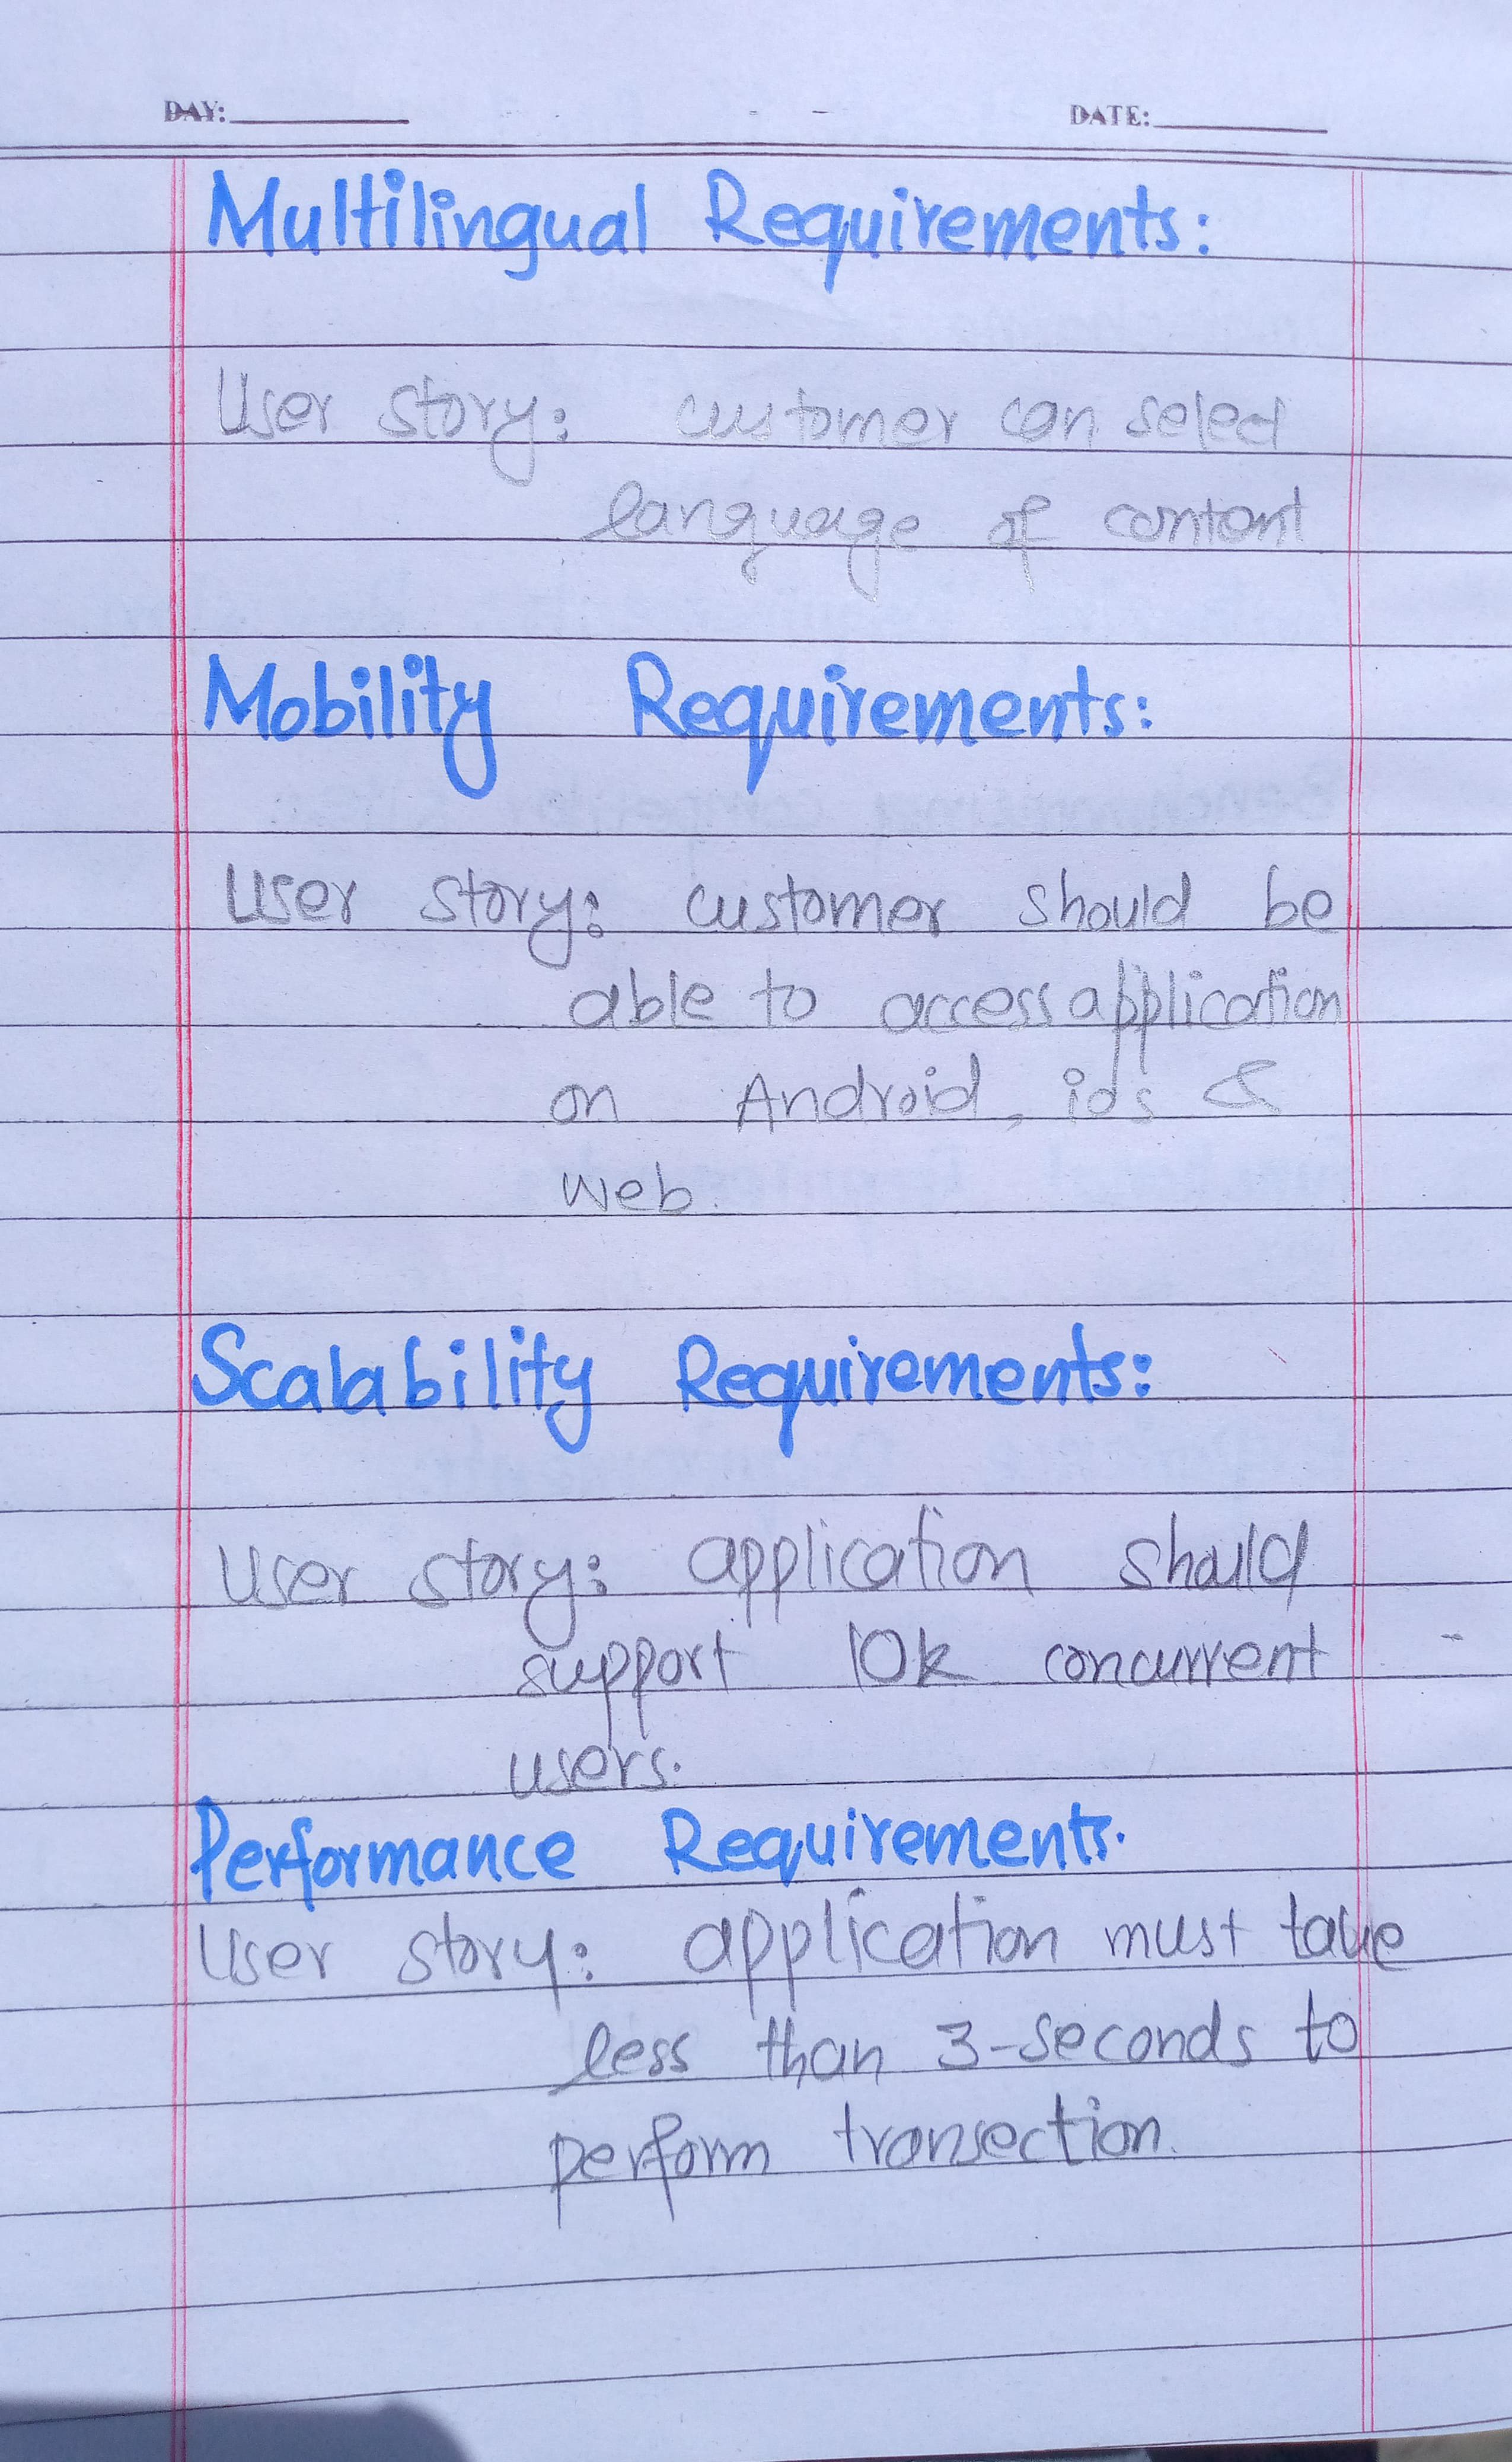 DAY:
DATE:
Multilingual Requirements:
User story: customer can select
language of content
Mobility Requirements:
User story: customer should be
able to access application
on Android, ios &
web.
Scalability Requirements:
User story: application should
support 10k concurrent
users.
Performance Requirements.
User story: application must take
less than 3-seconds to
perform transection.